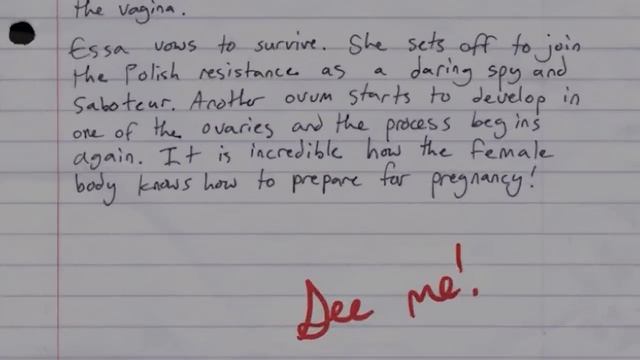 the vagina.
Essa vows to survive. She sets off to join
the Polish resistance as a daring spy and
Saboteur. Another ovum starts to develop in
one of the ovaries and the process begins
again. It is incredible how the female
body knows how to prepare for pregnancy!
See me!